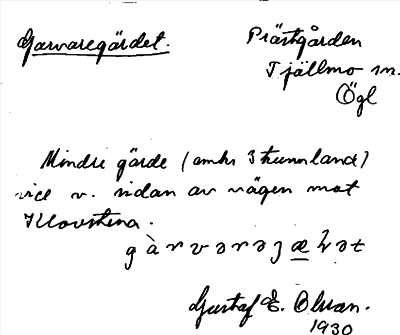 Garvaregärdet.
Prästgården
Tjällmo sn.
Ögl
Mindre gärde (omkr 3 tunnland)
vid v. sidan av vägen mot
Klovstena.
gàrvarəʒæ̲ɖət
Gustaf E. Olsson.
1930